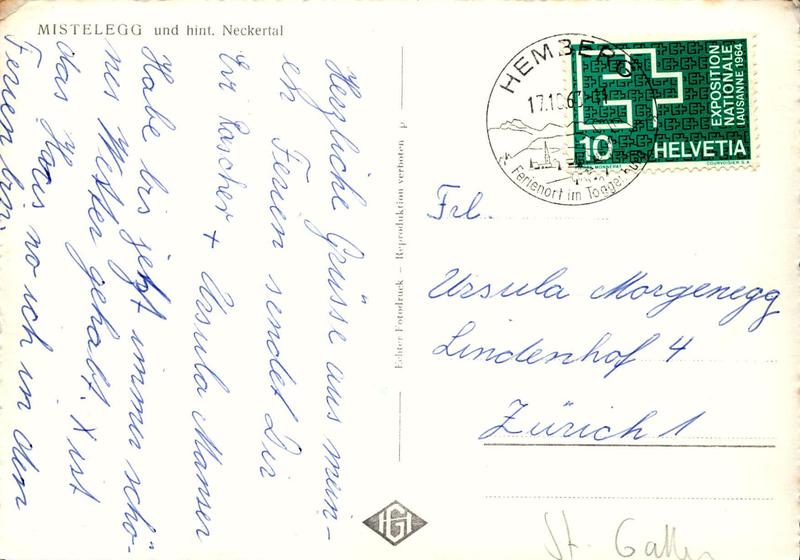 MISTELEGG und hint. Neckertal
Herzliche Grüsse aus mein-
en Ferien sendet Dir
Ursula Manser
Habe bis jetzt immer schö-
nes Wetter gehabt. X ist
das Haus wo ich in den
Ferien bin.
Echter Fotodruck – Reproduktion verboten P
HEMBERG
17.10.63
Ferienort im Toggenburg
EXPOSITION
NATIONALE
LAUSANNE 1964
10 HELVETIA
COURVOISIER S.A.
Frl.
Ursula Morgenegg
Lindenhof 4
Zürich 1
HG
St. Gallen